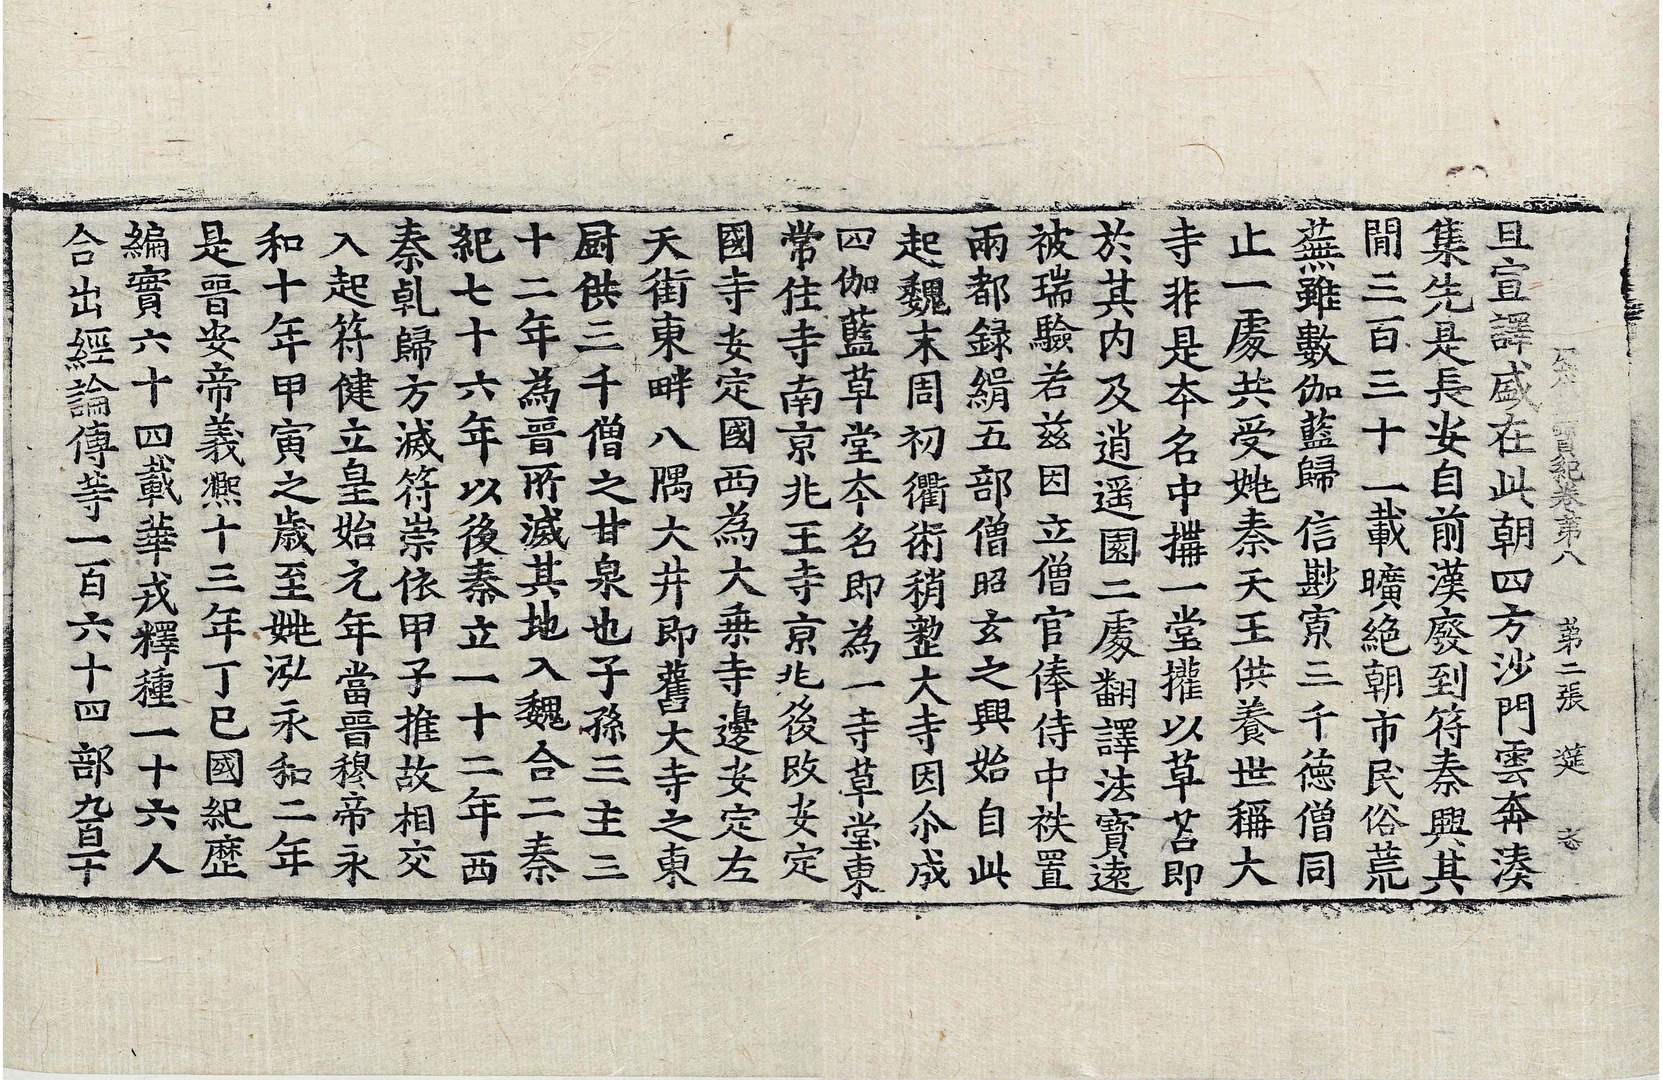 寶紀卷第八 第二張 筵
旦宣譯盛在此朝四方沙門雲奔湊
集先是長安自前漢廢到符秦興其
間三百三十一載曠絶朝市民俗荒
蕪雖數伽藍歸信尠索三千德僧同
止一處共受姚秦天王供養世稱大
寺非是本名中搆一堂攉以草苫即
於其内及逍遥園二處翻譯法寶遠
被瑞驗若茲因立僧官俸侍中秩置
兩都録緝五部僧昭玄之興始自此
起魏末周初衢術稍整大寺因尒成
四伽藍草堂本名即為一寺草堂東
常住寺南京兆王寺京兆後改安定
國寺安定國西為大乗寺邊安定左
天街東畔八隅大井即舊大寺之東
厨供三千僧之甘泉也子孫三主三
十二年為晋所滅其地入魏合二秦
紀七十六年以後秦立一十二年西
秦乹歸方滅符崇依甲子推故相交
入起符健立皇始元年當晋穆帝永
和十年甲寅之歳至姚泓永和二年
是晋安帝義熈十三年丁巳國紀歷
編實六十四載華戎釋種一十六人
合出經論傳等一百六十四部九百十